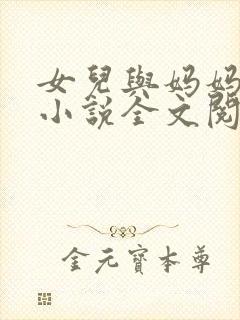 女兒與媽媽
小說全文閱
金元寶本尊